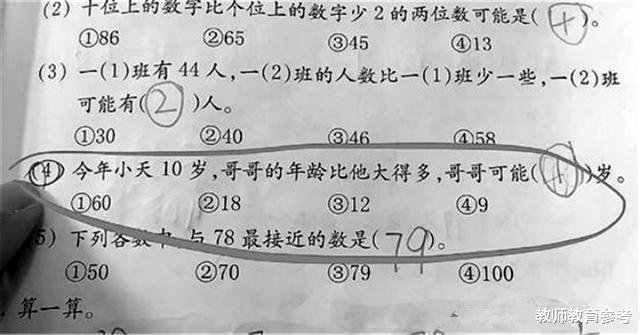 (2) 十位上的数字比个位上的数字少2的两位数可能是( )。
①86 ②65 ③45 ④13
(3) 一(1)班有44人,一(2)班的人数比一(1)班少一些,一(2)班
可能有(2)人。
①30 ②40 ③46 ④58
(4) 今年小天10岁,哥哥的年龄比他大得多,哥哥可能( )岁。
①60 ②18 ③12 ④9
5) 下列各数中,与78最接近的数是(79)。
①50 ②70 ③79 ④100
算一算。
教师教育参考